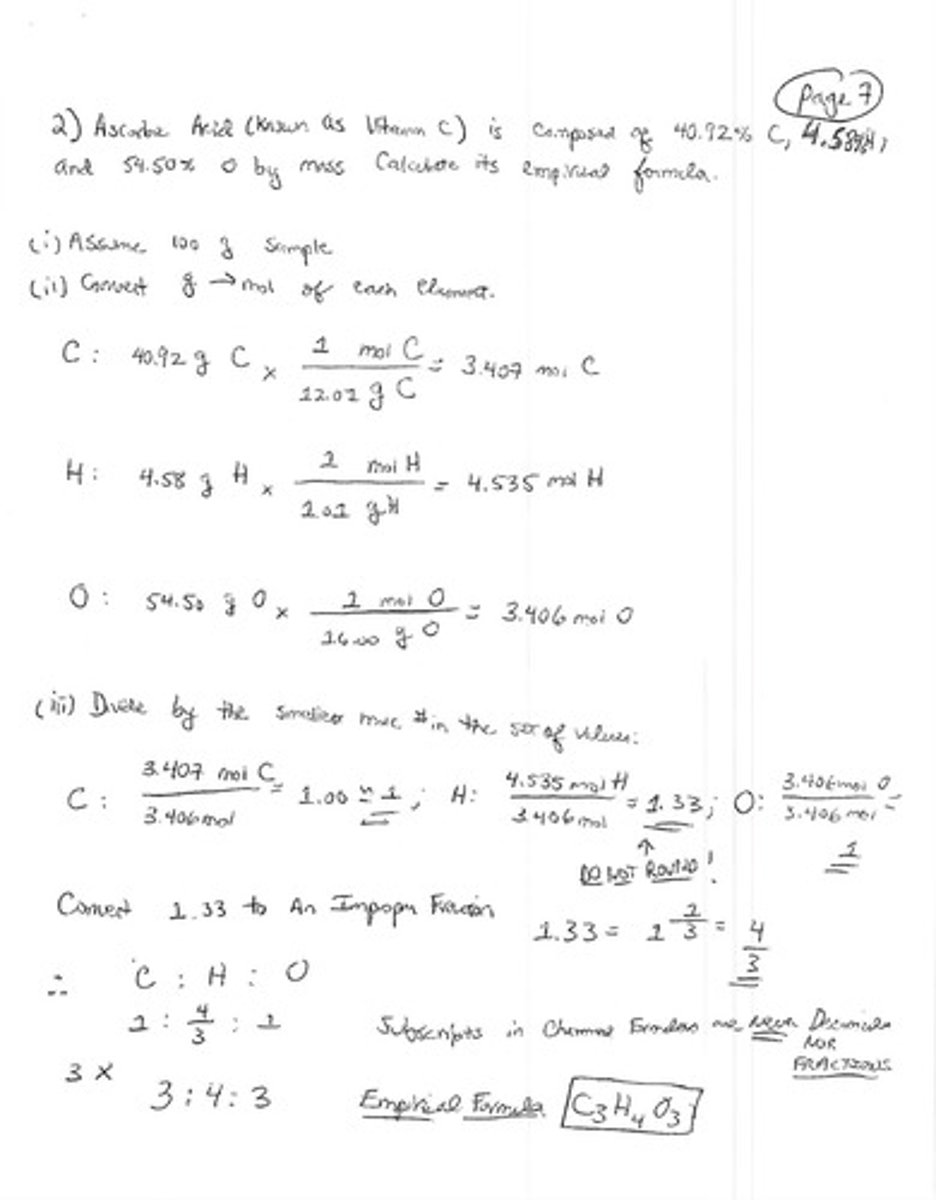 Page 7
2) Ascorbic Acid (Known as Vitamin C) is Composed of 40.92% C, 4.58%H,
and 54.50% O by mass Calculate its empirical formula.
(i) Assume 100 g Sample
(ii) Convert g → mol of each Element.
C: 40.92 g C × 1 mol C / 12.01 g C = 3.407 mol C
H: 4.58 g H × 1 mol H / 1.01 g H = 4.535 mol H
O: 54.50 g O × 1 mol O / 16.00 g O = 3.406 mol O
(iii) Divide by the smallest # in the set of values:
C: 3.407 mol C / 3.406 mol = 1.00 ≈ 1; H: 4.535 mol H / 3.406 mol = 1.33; O: 3.406 mol O / 3.406 mol = 1
↑
DO NOT ROUND!
Convert 1.33 to An Improper Fraction 1.33 = 1 1/3 = 4/3
∴ C : H : O
1 : 4/3 : 1 Subscripts in Chemical Formulas are Never Decimals
NOR
FRACTIONS
3 ×
3 : 4 : 3 Empirical Formula C3H4O3